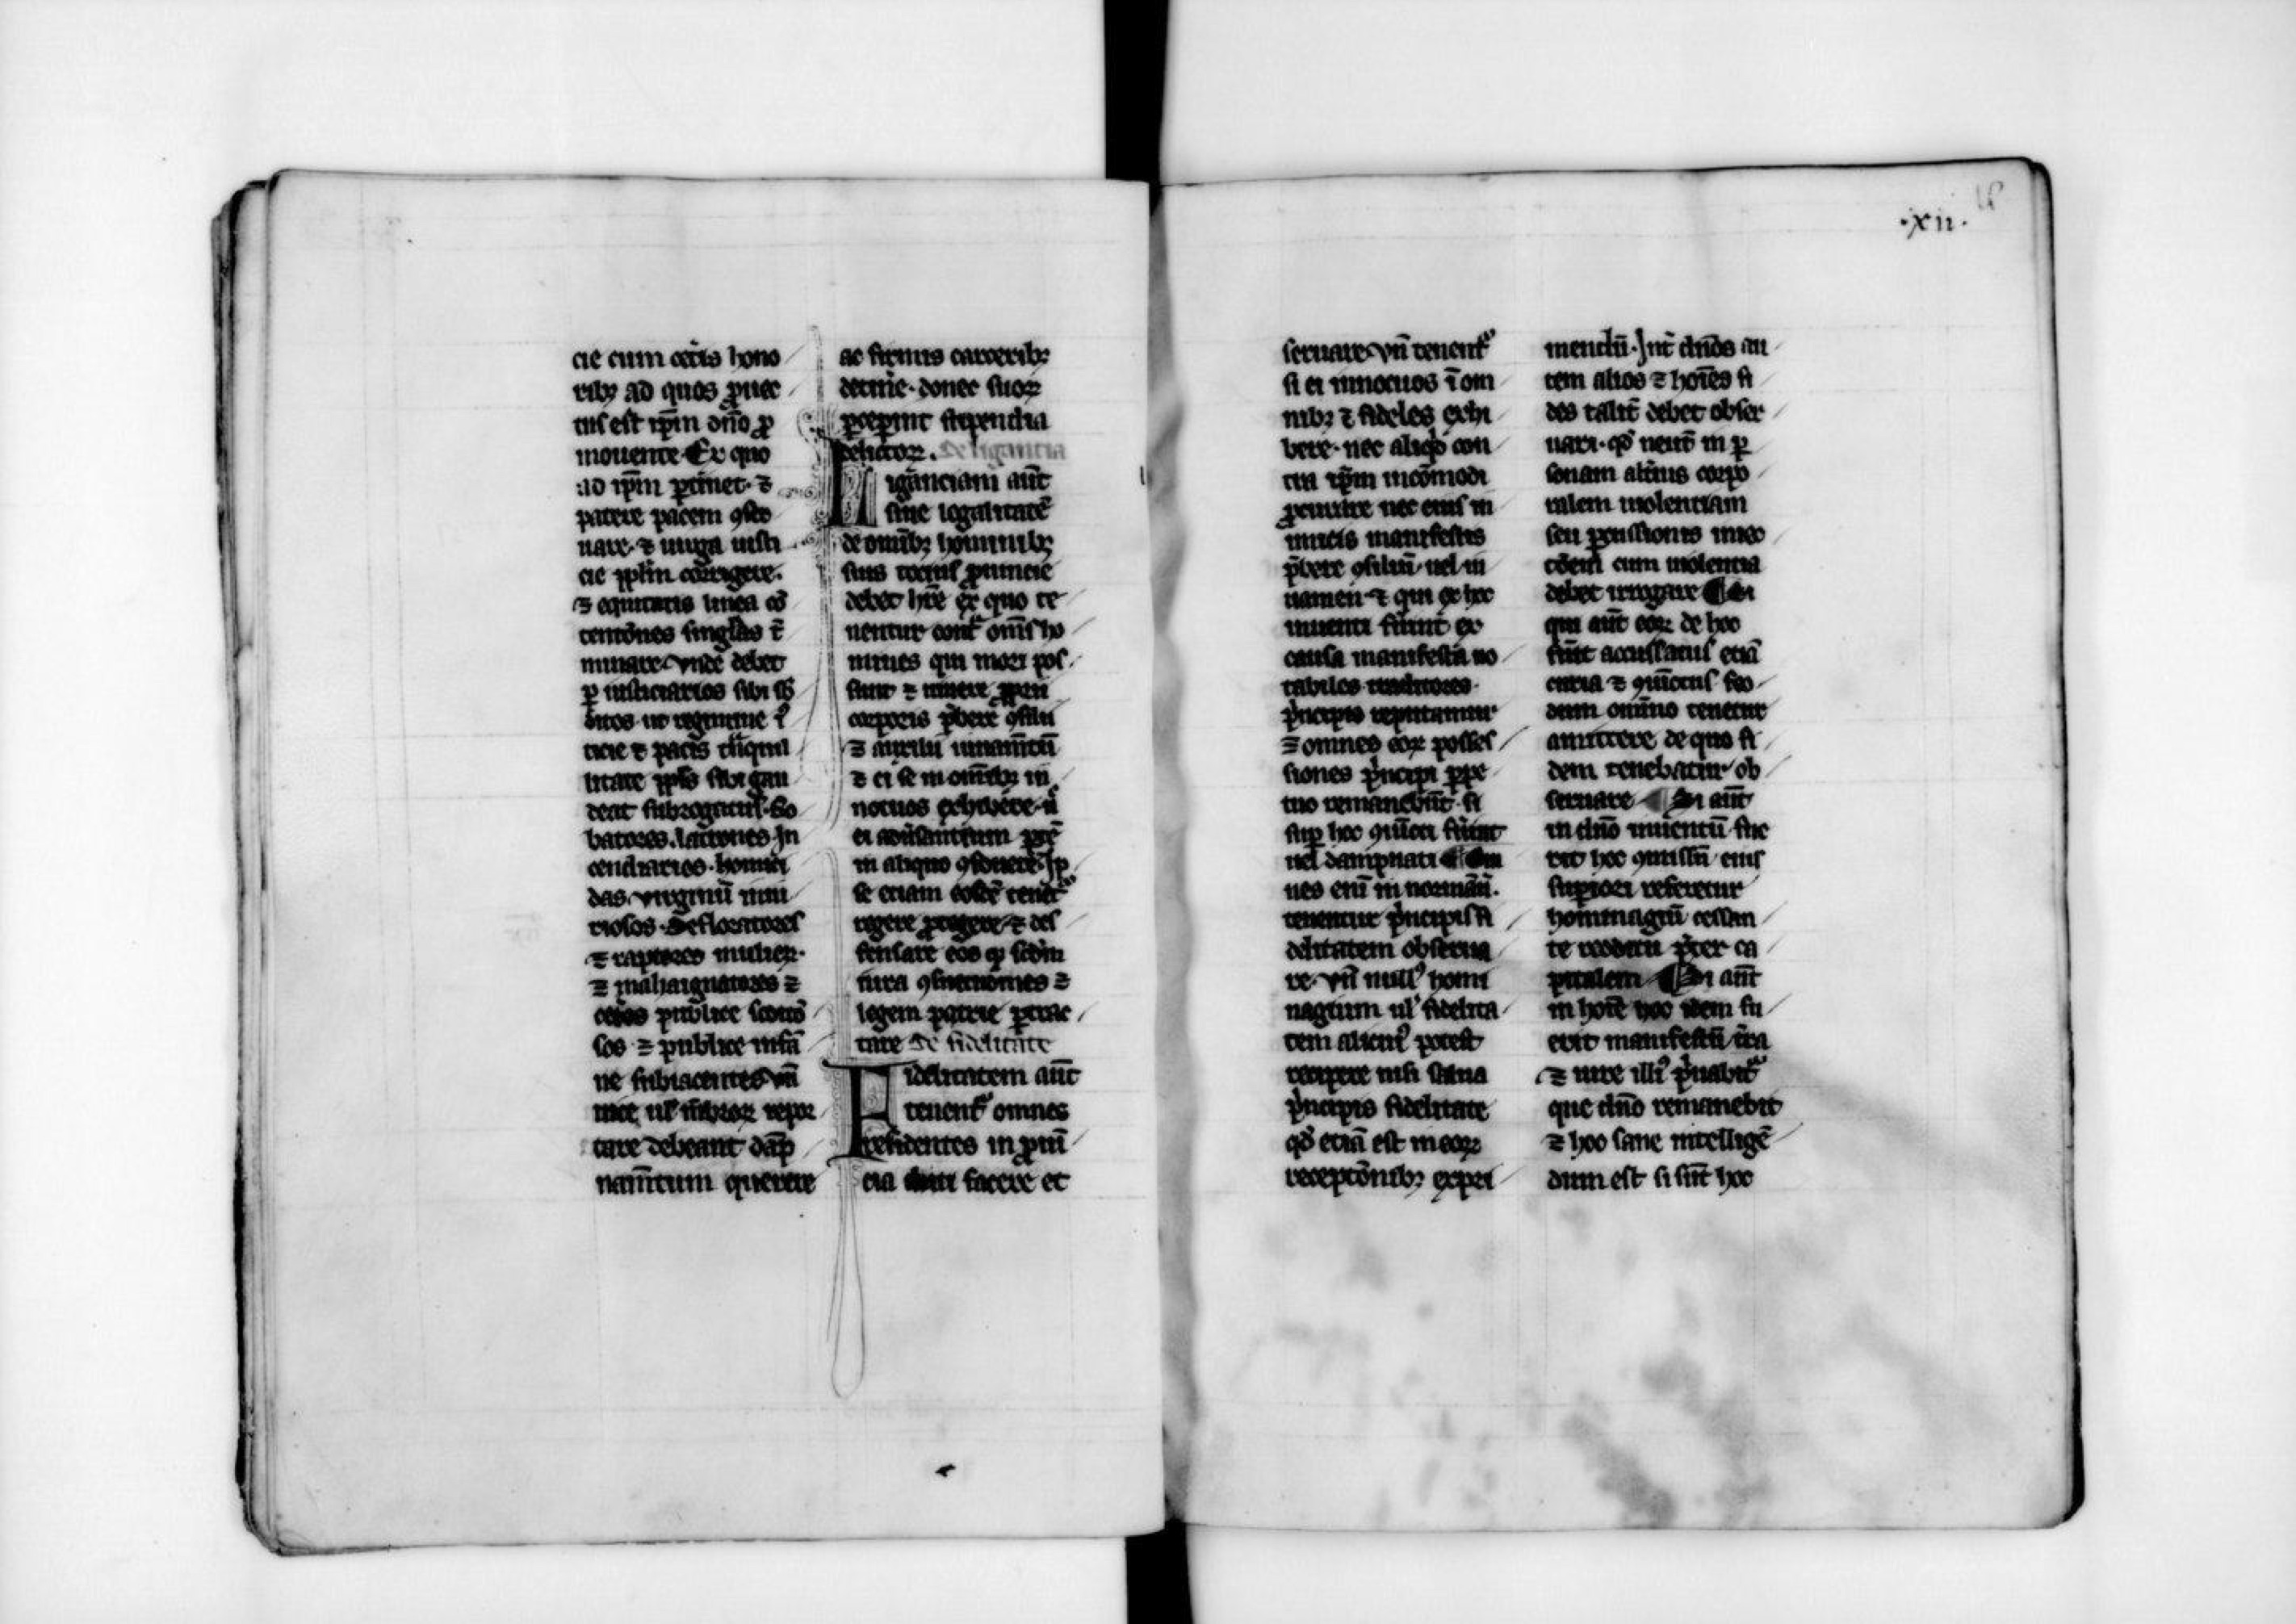 cie cum cet̃is hono
ribꝫ ad quos ꝓuec
tus est ip̃m dño ꝓ
mouente. Ex quo
ad ip̃m ꝑtinet ⁊
patrie pacem ꝯser
uare ⁊ uirga iusti
cie pp̃lm corrigere.
⁊ equitatis linea cõ
tentões singl̃as t̃
minare. vnde debet
ꝑ iusticiarios sibi sb̃
ditos
ticie ⁊ pacis t̃nquil
litate ppl̃s sibi gau
deat subrogatus. Ro
batores. latrones. In
cendiarios. homici
das. virginũ iniu
riosos. defloratores
⁊ raptores mulieꝝ.
⁊ mahaignatores ⁊
cet̃os publice
sos ⁊ publice infã
ne subiacentes vñ
uite ul̃ mẽbroꝝ repor
tare debeant dãp
namẽtum querere
ac firmis carceribꝫ
detinẽ. donec suoꝝ
ꝑcepint stipendia
delictoꝝ. De ligancia
Liganciam aũt
siue legalitatẽ
de omĩbꝫ hominibꝫ
suis tocius ꝓuincie
debet hr̃e ex quo te
nentur cont̃ om̃s ho
mines qui mori pos
sunt ⁊ uiuere ꝓprii
corporis p̃bere ꝯsiliũ
⁊ auxilii iuuamẽtũ
⁊ ei se in omĩbꝫ in
nocuos exhibere. nc̃
ei aduersantium ptẽ
in aliquo ꝯfouere. Ip̃
se etiam eosdẽ tenet᷑
regere ꝓtegere ⁊ def
fensare eos qꝫ scdm̃
iura ꝯsuetudines ⁊
legem patrie ꝑtrac
tare De fidelitate
Fidelitatem aũt
tenent᷑ omnes
residentes in ꝓuĩ
cia duci facere et
.xii.
seruare. vñ tenent᷑
si ei innocuos ĩ om
nibꝫ ⁊ fideles exhi
bere. nec aliqͥd con
tra ip̃m incõmodi
ꝓcurare nec eius in
imicis manifestis
p̃bere ꝯsiliũ. uel iu
uamen ⁊ qui ex hoc
inuenti fũint ex
causa manifesta no
tabiles traditores
p̃ncipis reputantur
⁊ omnes eoꝝ posses
siones p̃ncipi ꝑpe
tuo remanebũt. si
suꝑ hoc ꝯuicti fũint
uel dampnati ¶ Om
nes enĩ in normañ.
tenentur p̃ncipis fi
delitatem obserua
re. vñ null᷒ homi
nagium ul̃ fidelita
tem alicui᷒ potest
recipere nisi salua
p̃ncipis fidelitate
qd̃ etiã est in eoꝝ
receptõnibꝫ expri
mendũ. Int̃ dños au
tem alios ⁊ hoĩes fi
des talit̃ debet obser
uari. qd̃ neut̃ in ꝑ
sonam alt̃ius corpo
ralem uiolentiam
seu ꝑcussionis iniec
tõem cum uiolentia
debet irrogare ¶ Si
qui aũt eoꝝ de hoc
fũit accussatus etiã
curia ⁊ ꝯuictus feo
dum omĩno tenetur
amittere de quo fi
dem tenebatur ob
seruare ¶ Si aũt
in dño inuentũ fue
rit hoc ꝯmissũ eius
suꝑiori referetur
hominagiũ cessan
te redditu p̃ter ca
pitalem ¶ Si aũt
in hoĩe hoc idem fu
erit manifestũ t̃ra
⁊ iure illi᷒ p̃uabit᷑
que dño remanebit
⁊ hoc sane intelligẽ
dum est si sint hoc